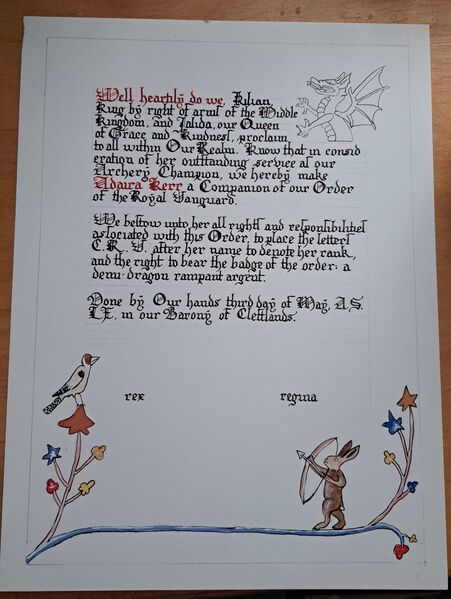 Well heartily do we, Kilian
King by right of arms of the Middle
Kingdom, and Jalida, our Queen
of Grace and Kindness, proclaim
to all within Our Realm. Know that in consid
eration of her outstanding service as our
Archery Champion, we hereby make
Adaira Kerr a Companion of our Order
of the Royal Vanguard.
We bestow unto her all rights and responsibilities
associated with this Order, to place the letters
C.R.V. after her name to denote her rank,
and the right to bear the badge of the order: a
demi-dragon rampant argent.
Done by Our hands third day of May, A.S.
LX, in our Barony of Cleftlands.
rex regina